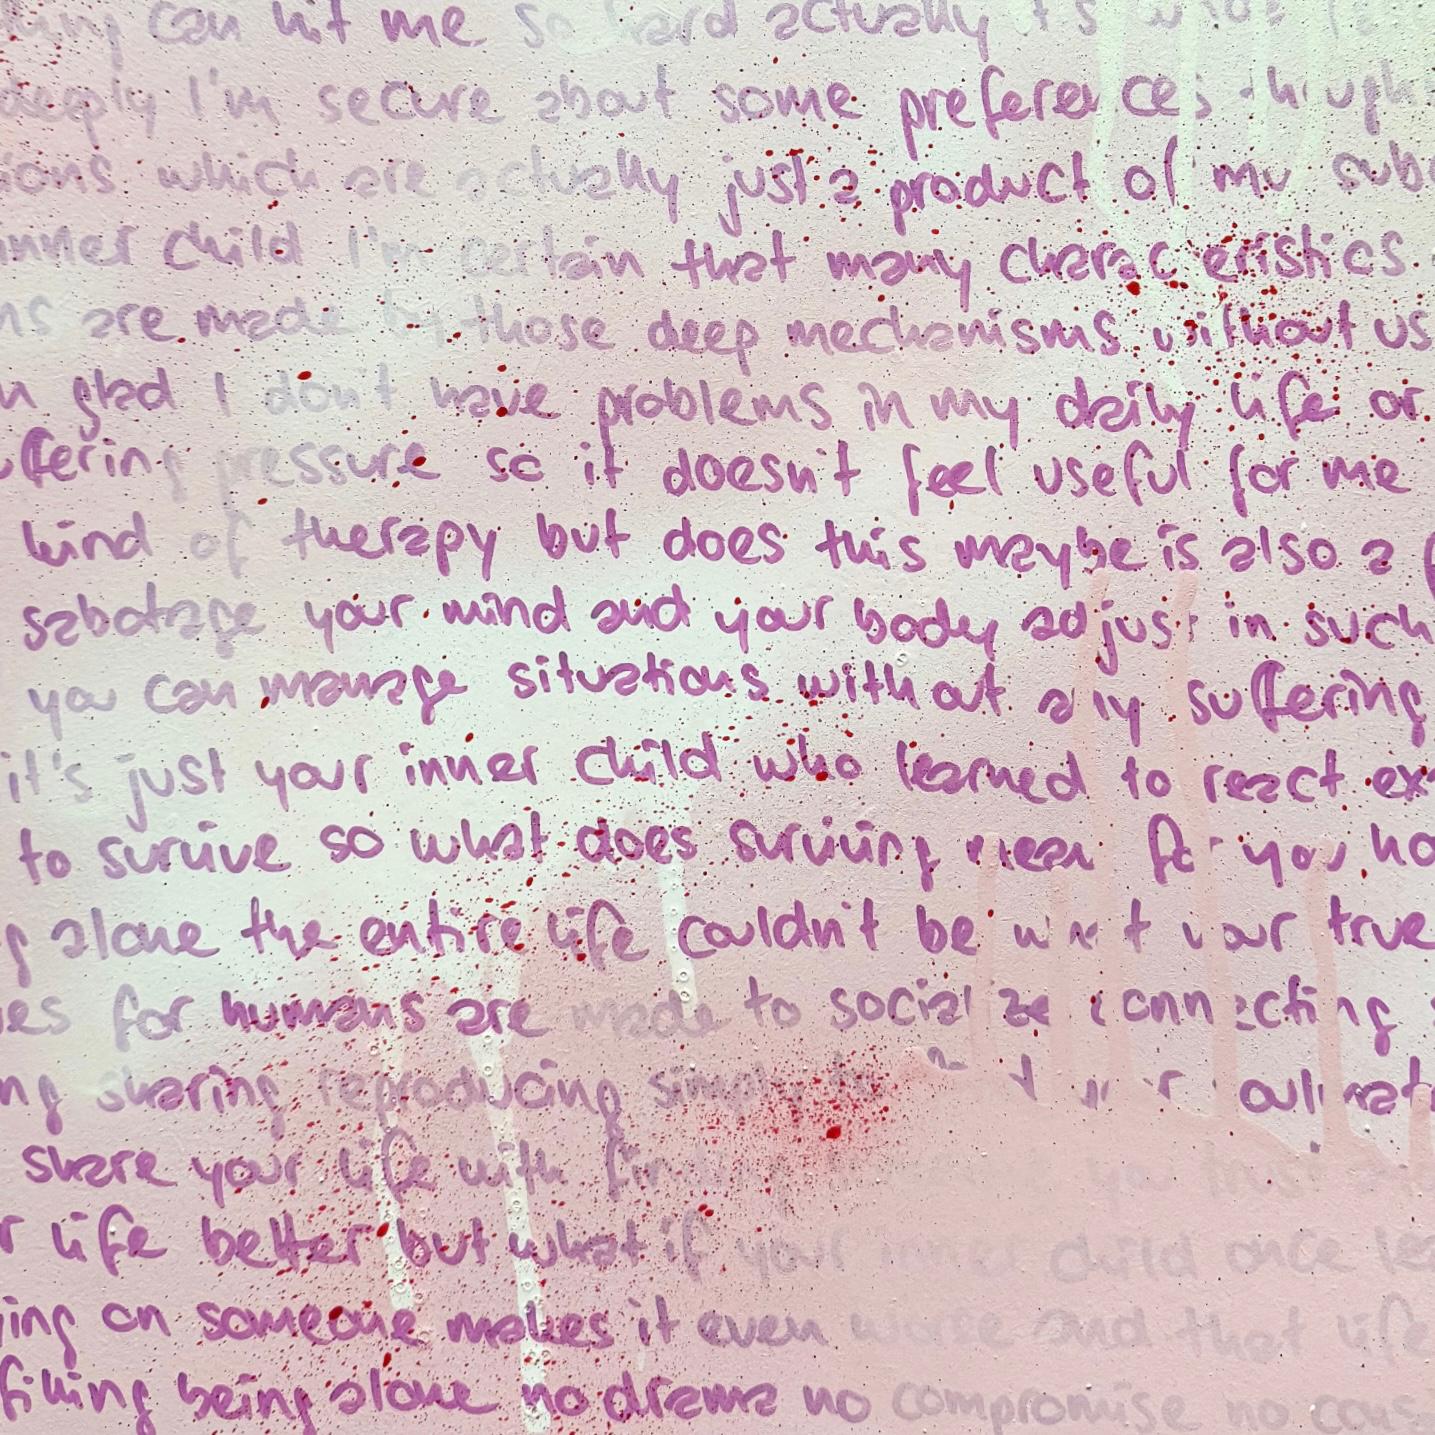 can hit me so hard actually it's what
deeply I'm secure about some preferences though
which are actually just a product of my
inner child I'm certain that many characteristics
are made by those deep mechanisms without us
glad I don't have problems in my daily life or
pressure so it doesn't feel useful for me
kind of therapy but does this maybe is also a
sabotage your mind and your body adjust in such
you can manage situations without any suffering
it's just your inner child who learned to react
to survive so what does surviving mean for you
alone the entire life couldn't be what your true
for humans are made to socialize connecting
sharing reproducing simply
share your life with you trust
life better but what if your inner child once
on someone makes it even worse and that life
being alone no drama no compromise no